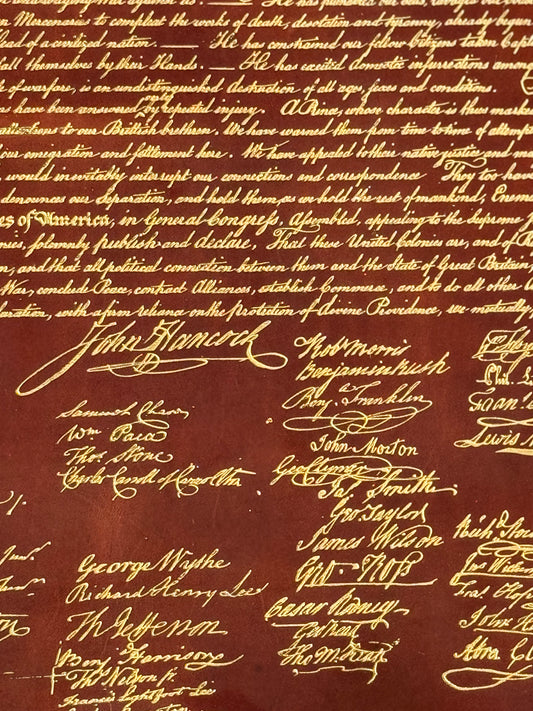 Mercenaries to compleat the works of death, desolation and tyranny, already begun
Head of a civilized nation. — He has constrained our fellow Citizens taken Capti
fall themselves by their Hands. — He has excited domestic insurrections among
of warfare, is an undistinguished destruction of all ages, sexes and conditions.
have been answered only by repeated injury. A Prince, whose character is thus marked
attentions to our Brittish brethren. We have warned them from time to time of attempt
our emigration and settlement here. We have appealed to their native justice and ma
would inevitably interrupt our connections and correspondence They too have
denounces our Separation, and hold them, as we hold the rest of mankind, Enem
es of America, in General Congress, Assembled, appealing to the Supreme J
nies, solemnly publish and declare, That these United Colonies are, and of R
n, and that all political connection between them and the State of Great Britain,
War, conclude Peace, contract Alliances, establish Commerce, and to do all other A
claration, with a firm reliance on the protection of divine Providence, we mutually
John Hancock
Samuel Chase
Wm Paca
Thos Stone
Charles Carroll of Carrollton
George Wythe
Richard Henry Lee
Th Jefferson
Benj Harrison
Thos Nelson jr.
Francis Lightfoot Lee
Robt Morris
Benjamin Rush
Benj. Franklin
John Morton
Geo Clymer
Jas. Smith
Geo. Taylor
James Wilson
Geo. Ross
Caesar Rodney
Geo Read
Tho M. Kean
Phil. L
Lewis M
Rich d
John H
Abra Cl